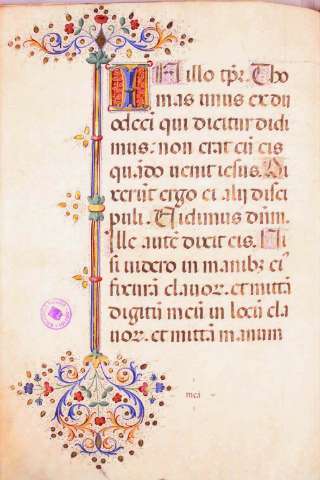 IN illo tpr. Tho
mas unus ex du
odecci qui dicitur didi
mus: non erat cu eis
quãdo uenit iesus. Di
xerũt ergo ei alij disci
puli. Uidimus dñm.
Ille autẽ dixit eis. Ni
si uidero in manibz ei
fixurã clauor. et mittã
digitũ meũ in locũ cla
uor. et mittã manum
meã